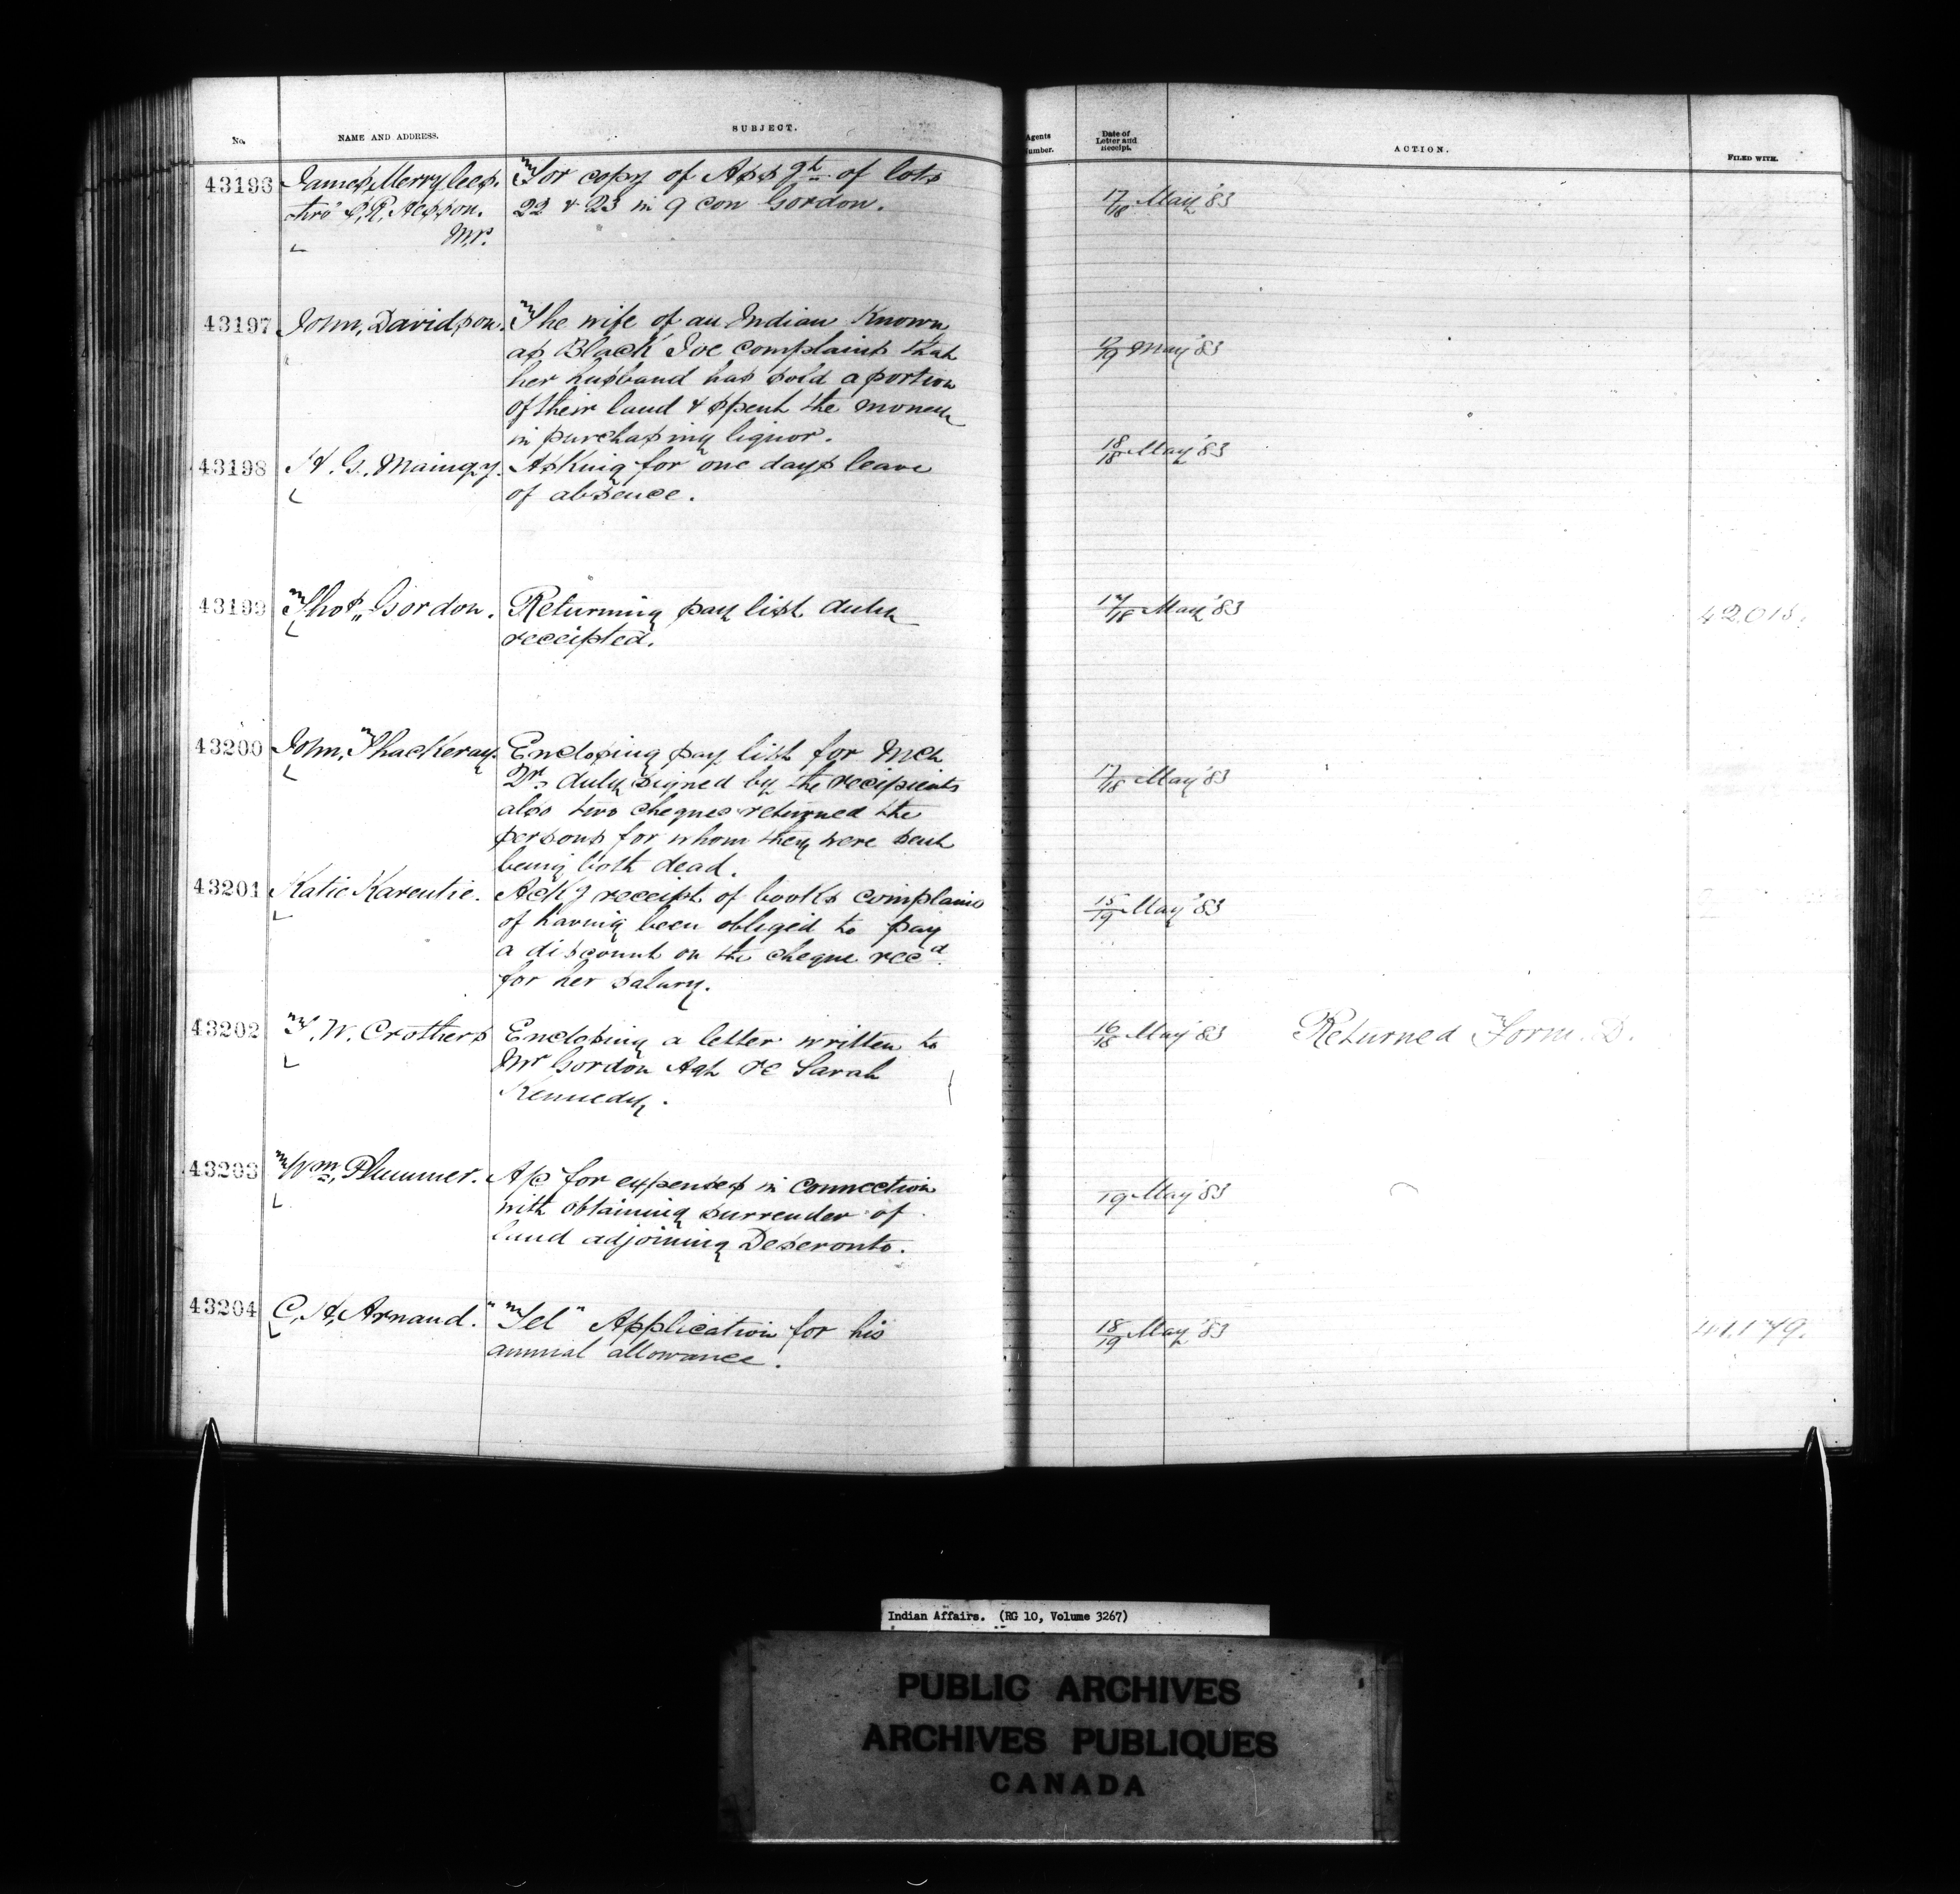 No.
NAME AND ADDRESS.
SUBJECT.
Agents
Number.
Date of
Letter and
Receipt.
ACTION.
FILED WITH.
43196
James Merrylees.
thro' S. R.
For copy of Assgt. of lots
22 & 23 in 9 con Gordon.
17/18 May '83
43197
John, Davidson.
The wife of an Indian Known
as Black Joe complains that
her husband has sold a portion
of their land & spent the money
in purchasing liquor.
/19 May '83
43198
H. G. Maingy.
Asking for one days leave
of absence.
18/18 May '83
43199
Thos, Gordon.
Returning pay list duly
receipted.
17/18 May '83
42.015.
43200
John, Thackeray.
Enclosing pay list for Mch
Qr. duly signed by the recipients
also two cheques returned the
persons for whom they were sent
being both dead.
17/18 May '83
43201
Katie Karentie.
Ackg receipt of books complains
of having been obliged to pay
a discount on the cheque recd.
for her salary.
15/19 May '83
43202
T. W. Crothers
Enclosing a letter written to
Mr Gordon Agt re Sarah
Kennedy.
16/18 May '83
Returned Form. D.
43203
Wm, Plummer.
A/c for expenses in connection
with obtaining surrender of
land adjoining Deseronto.
19 May '83
43204
C. A, Arnaud.
"Tel" Application for his
annual allowance.
18/19 May '83
41.179.
Indian Affairs. (RG 10, Volume 3267)
PUBLIC ARCHIVES
ARCHIVES PUBLIQUES
CANADA